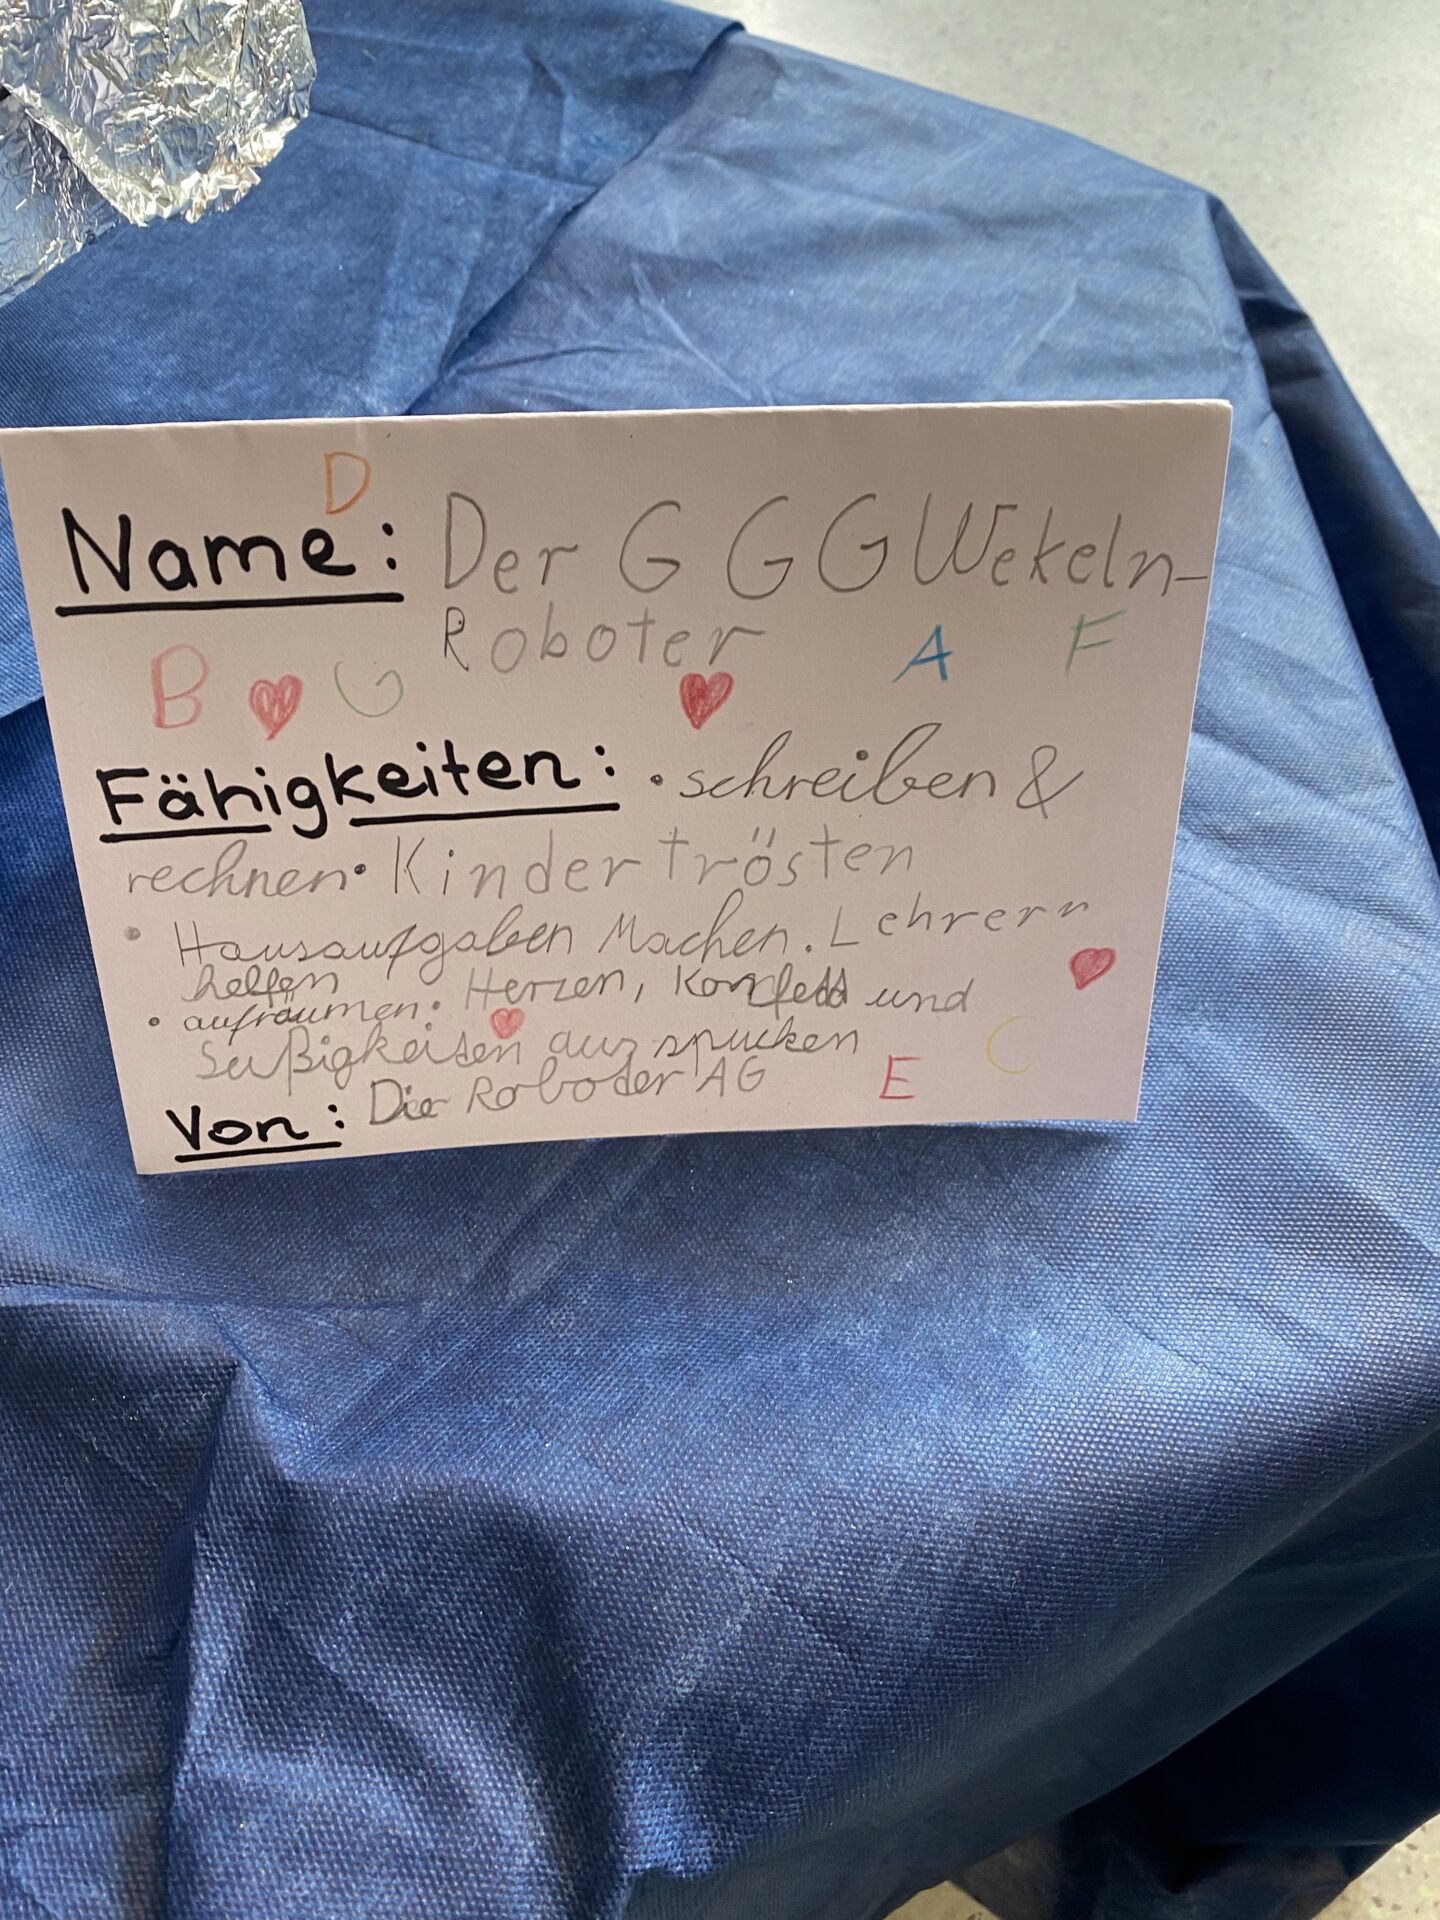 D
Name: Der G G G Wekeln-
Roboter
B G A F
Fähigkeiten: • schreiben &
rechnen • Kinder trösten
• Hausaufgaben Machen. Lehrern
helfen
• aufräumen • Herzen, Konfetti und
Sußigkeiten aus spucken
E C
Von: Die Roboder AG